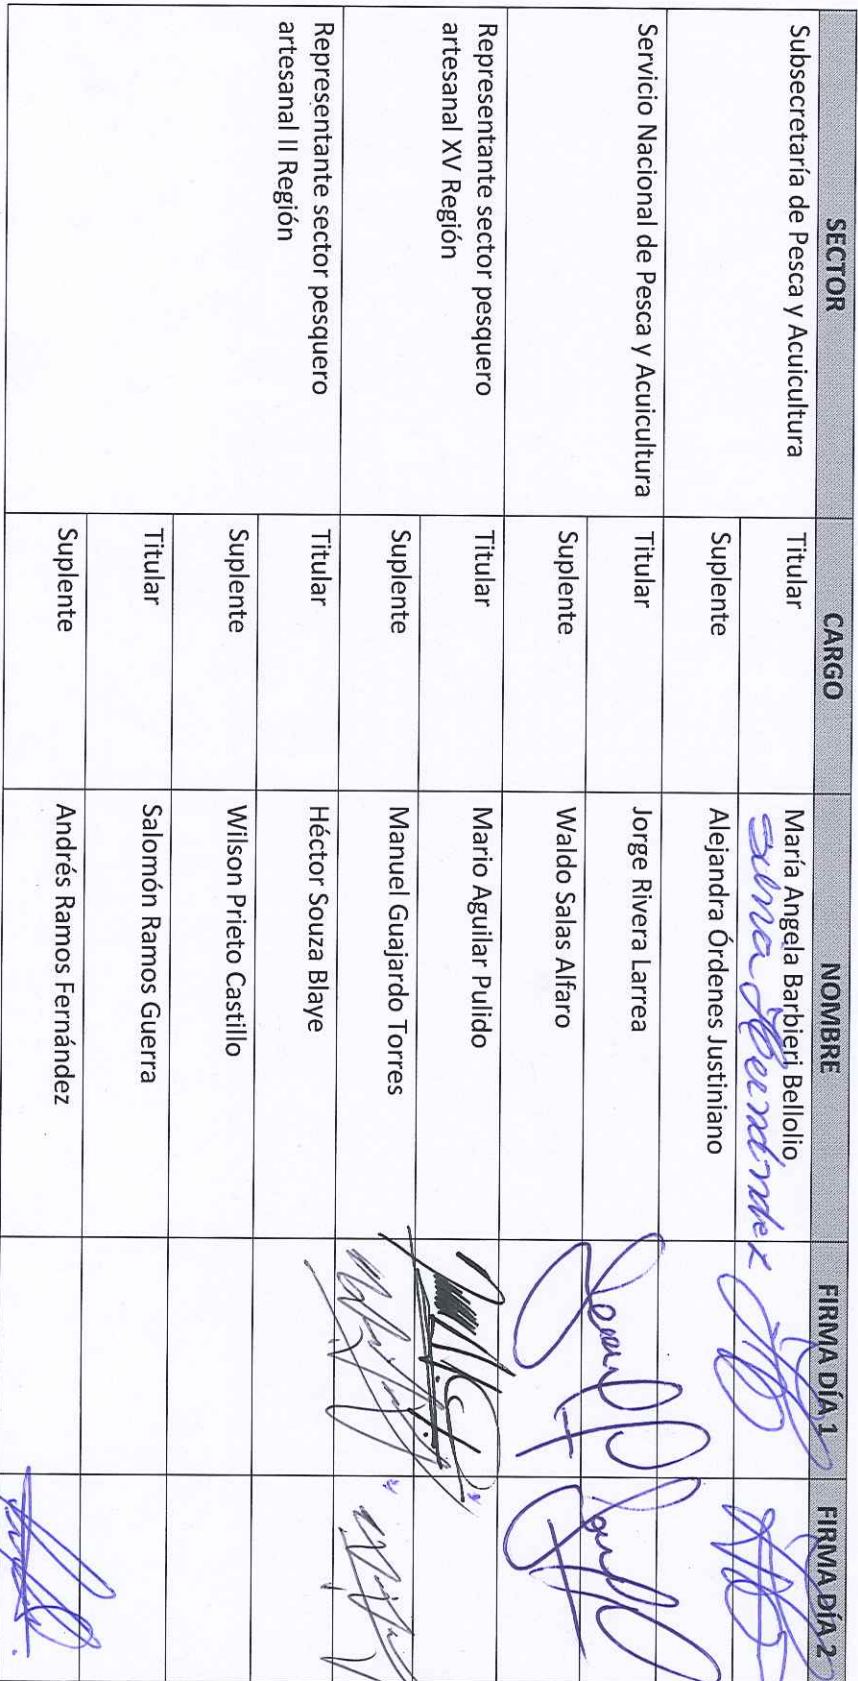 SECTOR CARGO NOMBRE FIRMA DÍA 1 FIRMA DÍA 2
Subsecretaría de Pesca y Acuicultura Titular María Angela Barbieri Bellolio
Suplente Alejandra Órdenes Justiniano
Servicio Nacional de Pesca y Acuicultura Titular Jorge Rivera Larrea
Suplente Waldo Salas Alfaro
Representante sector pesquero
artesanal XV Región
Titular Mario Aguilar Pulido
Suplente Manuel Guajardo Torres
Representante sector pesquero
artesanal II Región
Titular Héctor Souza Blaye
Suplente Wilson Prieto Castillo
Titular Salomón Ramos Guerra
Suplente Andrés Ramos Fernández